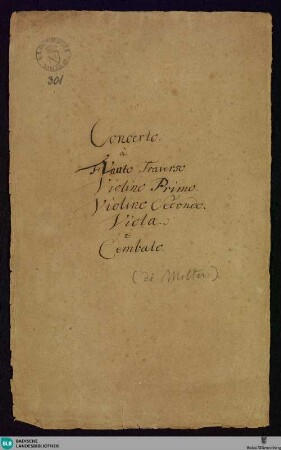 301
Concerto.
à
Flauto Traverso
Violino Primo.
Violino Secondo.
Viola
è
Cembalo
(de Molter)
BLB BADISCHE
LANDESBIBLIOTHEK
Baden-Württemberg